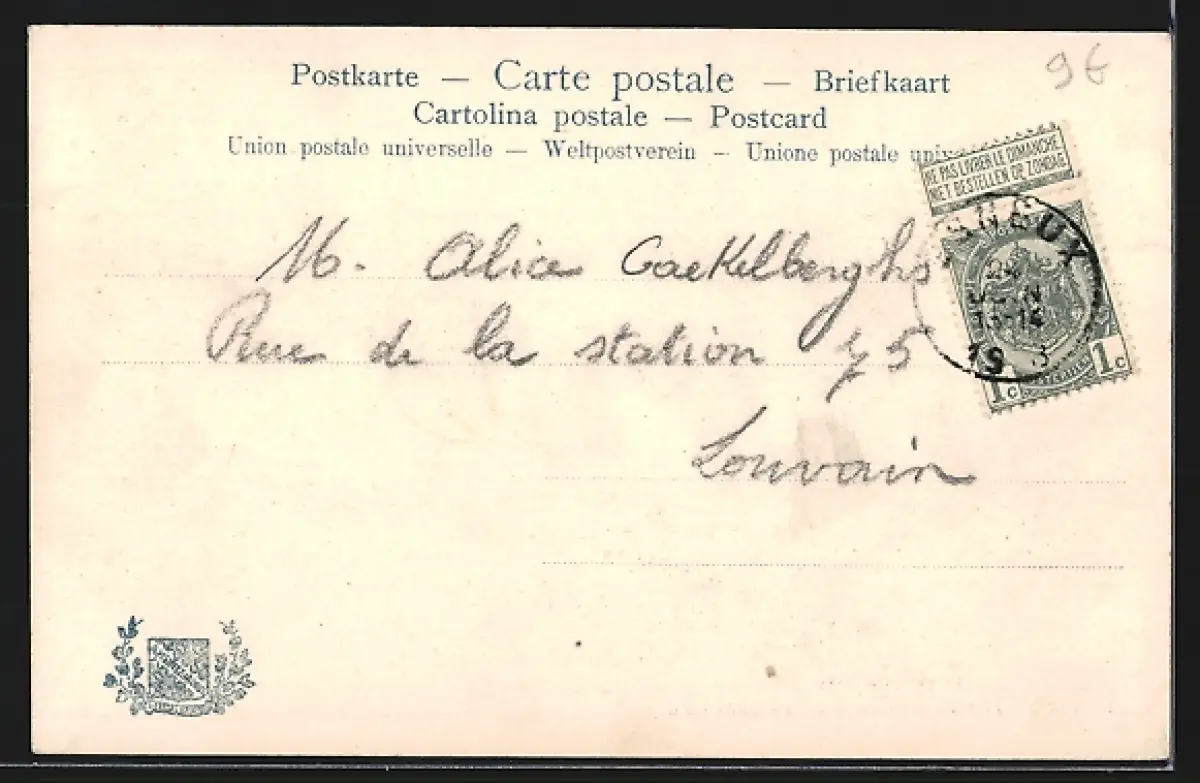 9 €
Postkarte — Carte postale — Briefkaart
Cartolina postale — Postcard
Union postale universelle — Weltpostverein — Unione postale univ
NE PAS LIVRER LE DIMANCHE
NIET BESTELLEN OP ZONDAG
M. Alice Gaekelberghs
Rue de la station 75
Louvain
EUX
19 3
1c 1c